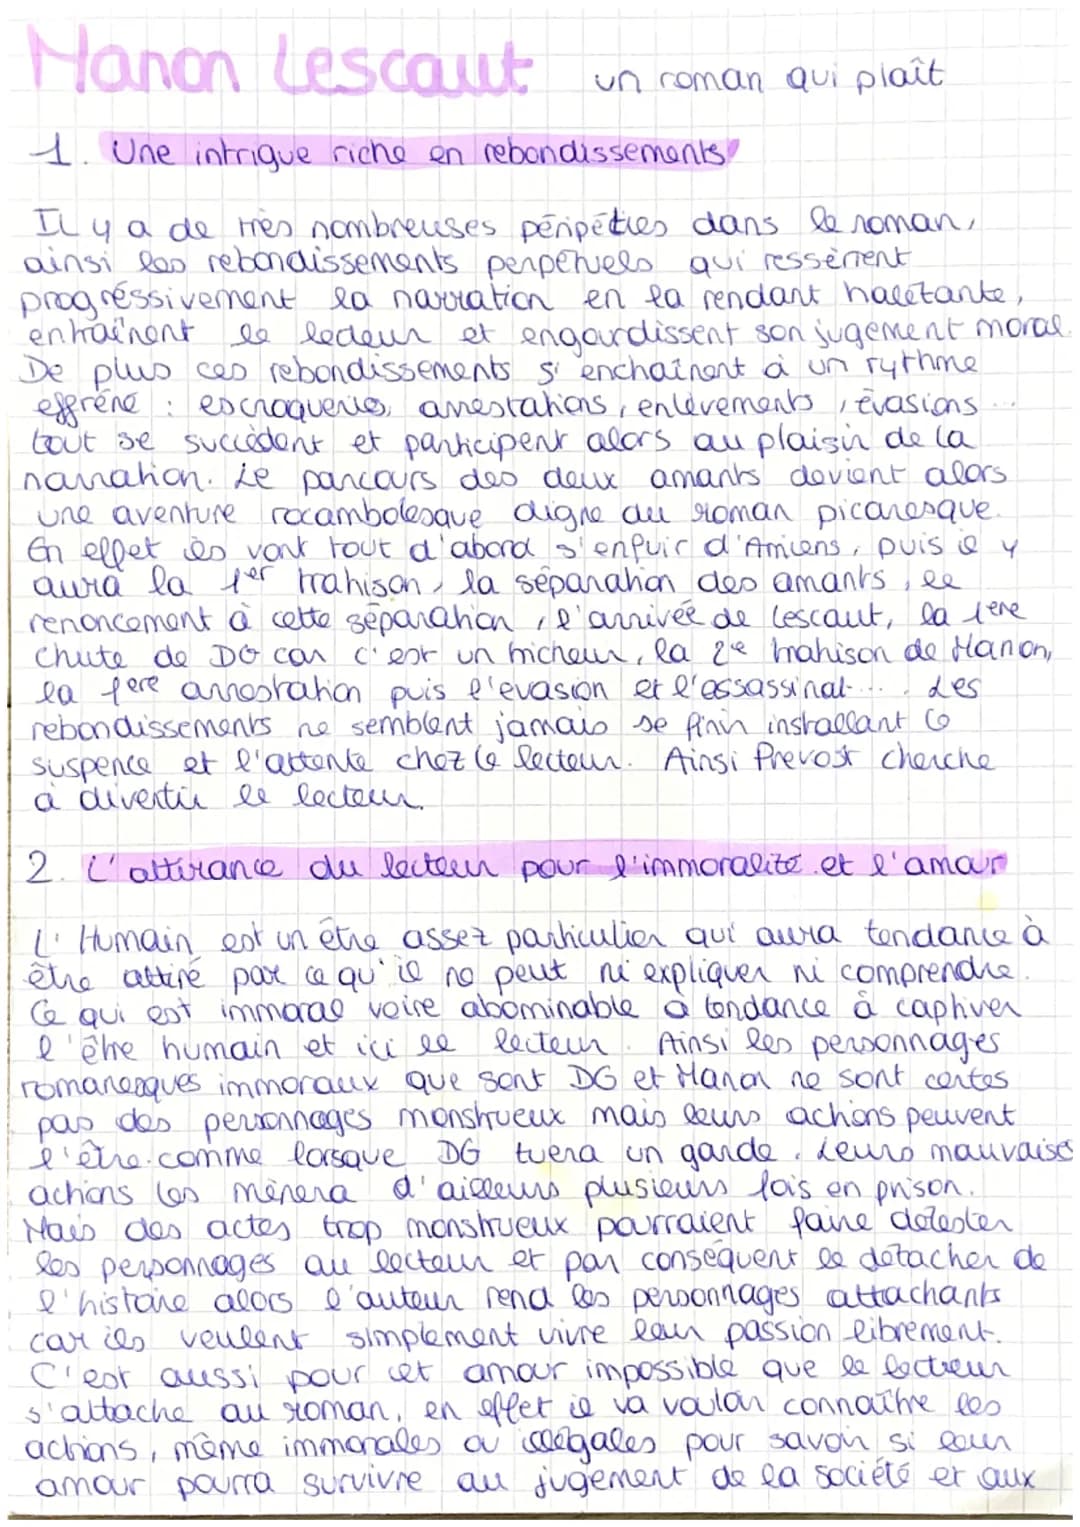 Manon Lescaut un roman qui plaît
1. Une intrigue riche en rebondissements
Il y a de très nombreuses péripéties dans le roman,
ainsi les rebondissements perpétuels qui ressèrent
progréssivement la narration en la rendant haletante,
entraînent le lecteur et engourdissent son jugement moral.
De plus ces rebondissements s'enchaînent à un rythme
effréné : escroqueries, arrestations, enlèvements, évasions ...
tout se succèdent et participent alors au plaisir de la
narration. Le parcours des deux amants devient alors
une aventure rocambolesque digne du roman picaresque.
En effet ils vont tout d'abord s'enfuir d'Amiens, puis il y
aura la 1er trahison, la séparation des amants, le
renoncement à cette séparation, l'arrivée de Lescaut, la 1ère
chute de DG car c'est un tricheur, la 2e trahison de Manon,
la 1ère arrestration puis l'évasion et l'assassinat.... Les
rebondissements ne semblent jamais se finir installant le
suspence et l'attente chez le lecteur. Ainsi Prevost cherche
à divertir le lecteur.
2. L'attirance du lecteur pour l'immoralité et l'amour
L'Humain est un être assez particulier qui aura tendance à
être attiré par ce qu'il ne peut ni expliquer ni comprendre.
Ce qui est immoral voire abominable a tendance à captiver
l'être humain et ici le lecteur. Ainsi les personnages
romanesques immoraux que sont DG et Manon ne sont certes
pas des personnages monstrueux mais leurs actions peuvent
l'être comme lorsque DG tuera un garde. Leurs mauvaises
actions les mènera d'ailleurs plusieurs fois en prison.
Mais des actes trop monstrueux pourraient faire détester
les personnages au lecteur et par conséquent le détacher de
l'histoire alors l'auteur rend les personnages attachants
car ils veulent simplement vivre leur passion librement.
C'est aussi pour cet amour impossible que le lectreur
s'attache au roman, en effet il va vouloir connaître les
actions, même immorales ou illégales pour savoir si leur
amour pourra survivre au jugement de la société et aux